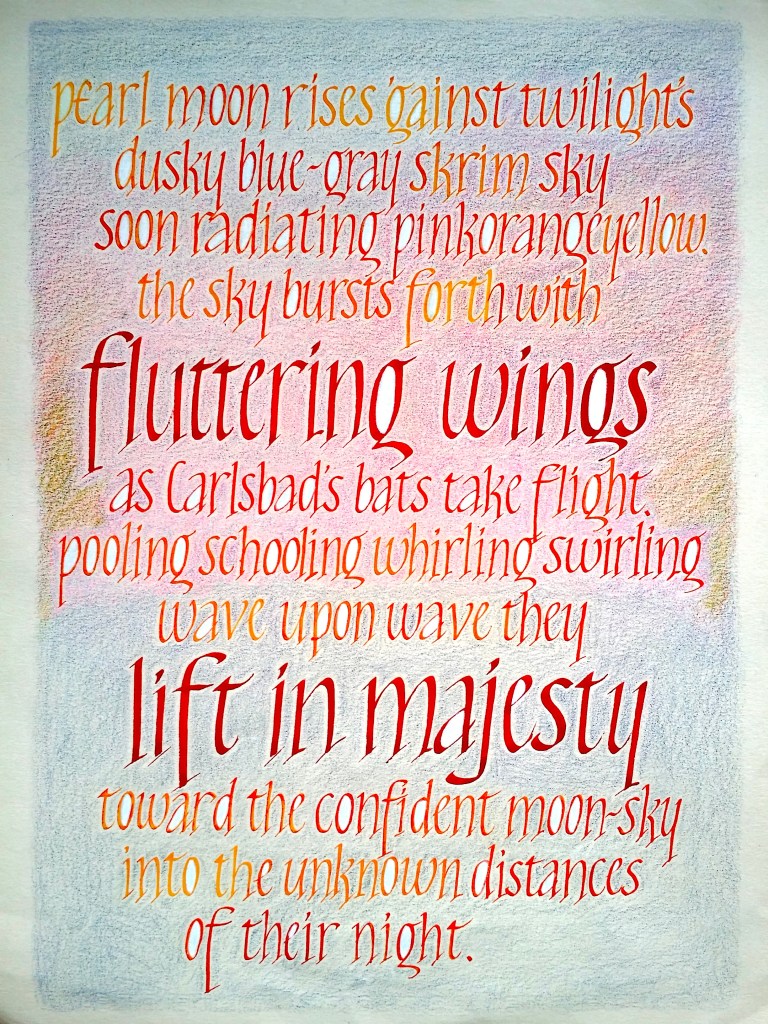 pearl moon rises 'gainst twilight's
dusky blue-gray skrim sky
soon radiating pinkorangeyellow.
the sky bursts forth with
fluttering wings
as Carlsbad's bats take flight.
pooling schooling whirling swirling
wave upon wave they
lift in majesty
toward the confident moon-sky
into the unknown distances
of their night.